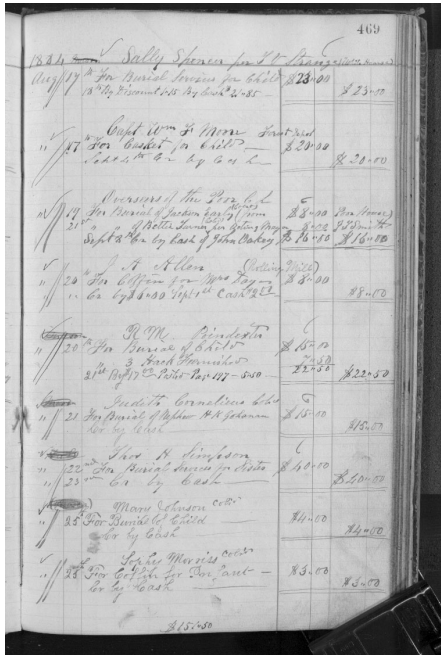 469
1884 Sally Spencer for
Aug 17th For Burial Services for Child $23.00
18th By Discount 1.15 By Cash 21.85 $23.00
Capt Wm F. Moore
" 17th For Casket for Child $20.00
Cr by Cash $20.00
Overseers of the Poor
" 19 For Burial of Jackson from $8.00 Poor House
21st " " of Bettie Turner 8.00
Sept 8th Cr by Cash of John Oakey $16.00 $16.00
J A Allen (Rolling Mill)
" 20th For Coffin for Mrs $8.00
" Cr by Sept 1st Cash $8.00
R. M. Poindexter
" 20th For Burial of Child $15.00
3 Hack Furnished 7.50
21st By Page 147 - 5.50 22.50 $22.50
Cornelius Col'd
" 21 For Burial of Nephew H K $15.00
Cr by Cash $15.00
Thos H. Simpson
" 22nd For Burial Services for Sister $40.00
" 23rd Cr by Cash $40.00
Mary Johnson Col'd
" 25th For Burial of Child $4.00
Cr by Cash $4.00
Sophy Morriss Col'd
" 25th For Coffin for Infant $3.00
Cr by Cash $3.00
$151.50